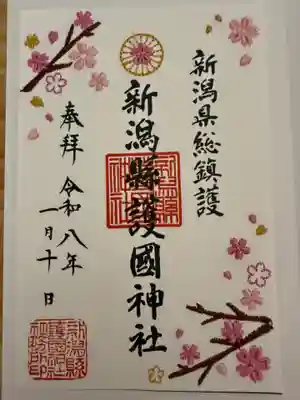 新潟県総鎮護
新潟縣護國神社
奉拝 令和八年
一月十日